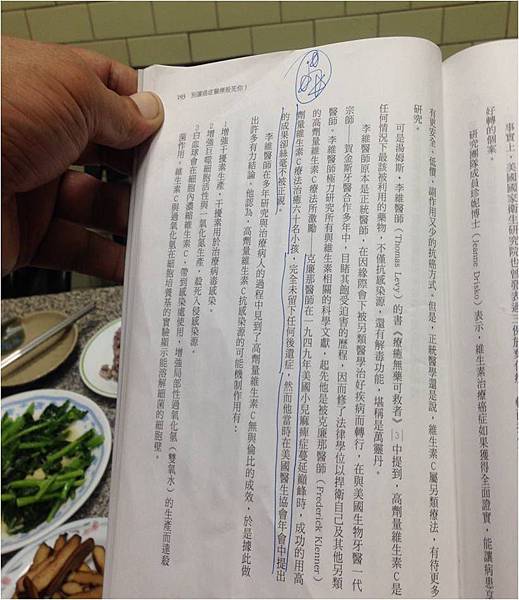 193 別讓癌症醫療殺死你!
事實上,美國國家衛生研究院也曾發表過三個放棄
好轉的個案。
研究團隊成員珍妮博士(Jeanne Drisko)表示,維生素治療癌症如果獲得全面證實,能讓病患享
有更安全、低價、副作用又少的抗癌方式。但是,正統醫學還是說,維生素C屬另類療法,有待更多
研究。
可是湯姆斯.李維醫師(Thomas Levy)的書《療癒無藥可救者》[3]中提到,高劑量維生素C是
任何情況下最該被利用的藥物,不僅抗感染源,還有解毒功能,堪稱是萬靈丹。
李維醫師原本是正統醫師,在因緣際會下被另類醫學治好疾病而轉行,在與美國生物牙醫一代
宗師——賀金斯牙醫合作多年中,目睹其飽受迫害的歷程,因而修了法律學位以捍衛自己及其他另類
醫師。李維醫師極力研究所有與維生素相關的科學文獻,起先他是被克廉那醫師(Frederick Klenner)
的高劑量維生素C療法所激勵——克廉那醫師在一九四九年美國小兒麻痺症蔓延巔峰時,成功的用高
劑量維生素C療法治癒六十名小孩,完全未留下任何後遺症,然而他當時在美國醫生協會年會中提出
的成果卻絲毫不被正視。
李維醫師在多年研究與治療病人的過程中見到了高劑量維生素C無與倫比的成效,於是據此做
出許多有力結論。他認為,高劑量維生素C抗感染源的可能機制作用有:
1增強干擾素生產,干擾素用於治療病毒感染。
2增強巨噬細胞活性與一氧化氮生產,殺死入侵感染源。
3白血球會在細胞內濃縮維生素C,帶到感染處使用,增強局部性過氧化氫(雙氧水)的生產而達殺
菌作用。維生素C與過氧化氫在細胞培養基的實驗顯示能溶解細菌的細胞壁。